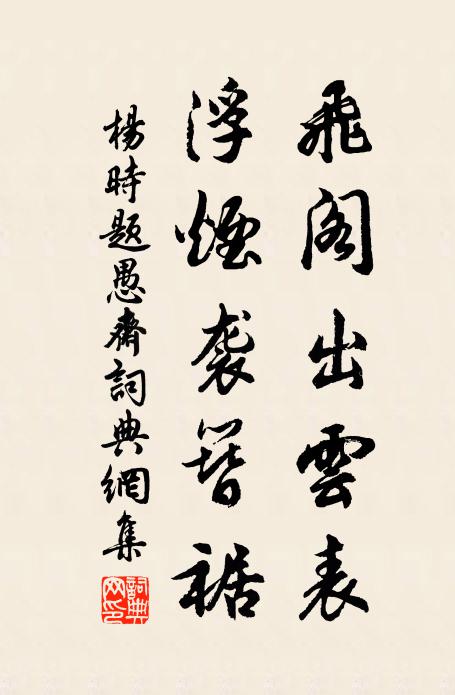 飛閣出雲表
浮煙襲簪裾
楊時題愚齋詞典網集
詞典網印